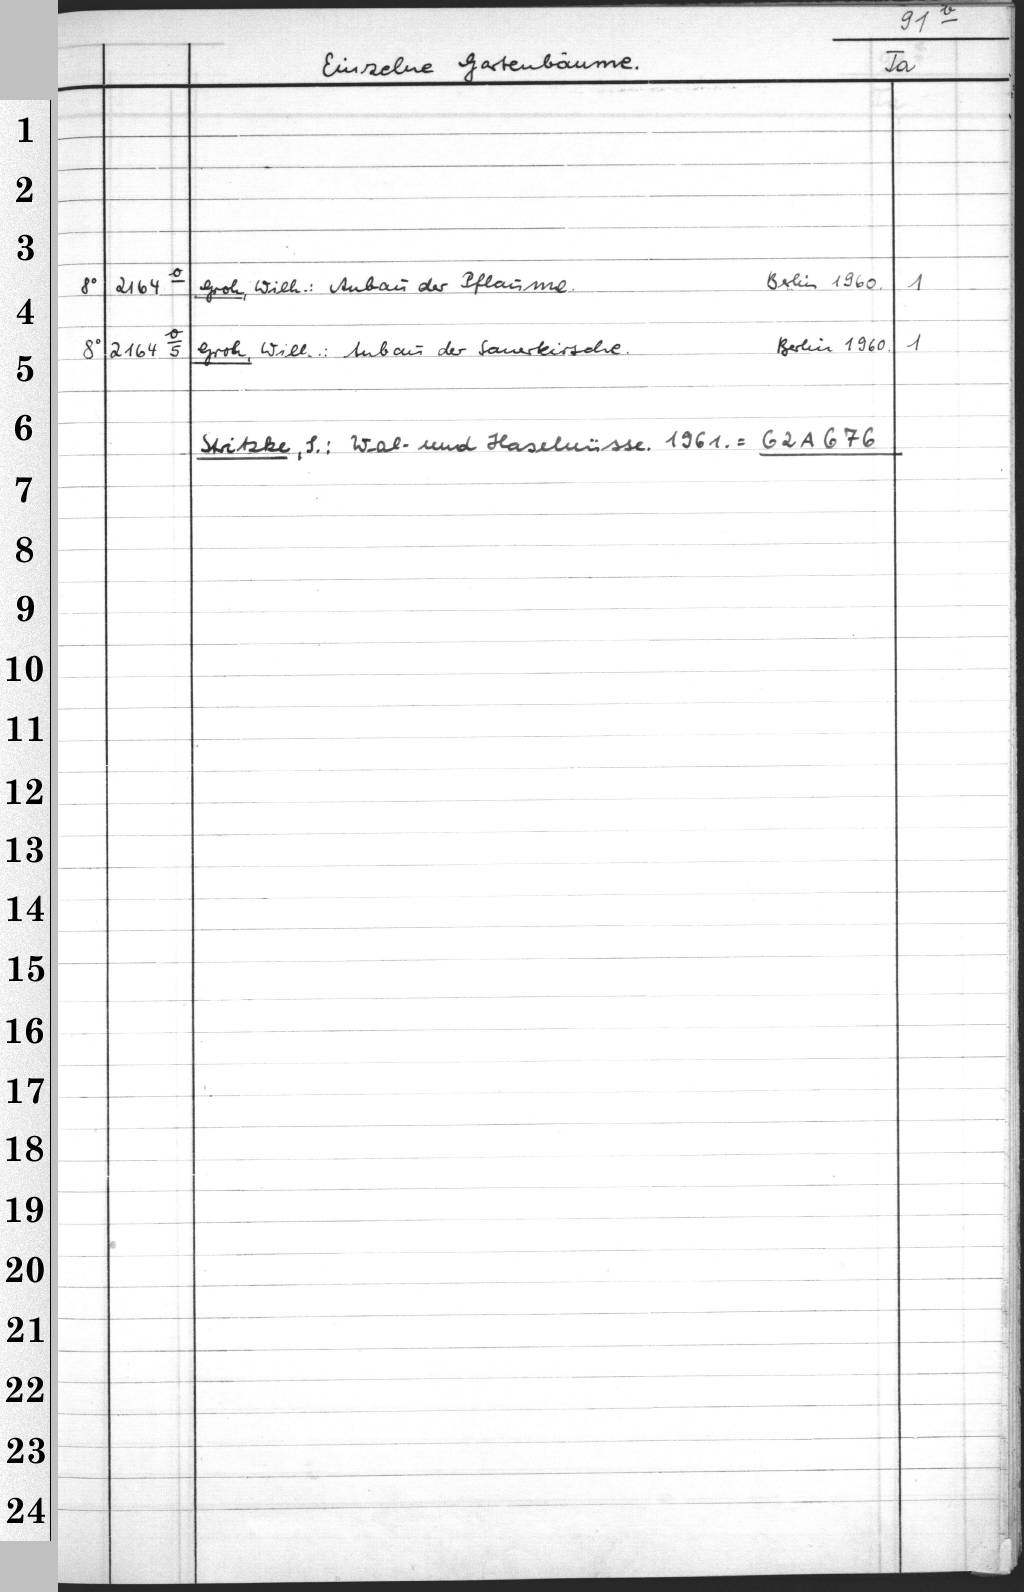 91 b
Einzelne Gartenbäume. Ta
1
2
3
8° 2164 o Groh, Wilh.: Anbau der Pflaume. Berlin 1960. 1
4
8° 2164 o/5 Groh, Wilh.: Anbau der Sauerkirsche. Berlin 1960. 1
5
6
Stritzke, S.: Wal- und Haselnüsse. 1961. = 62 A 676
7
8
9
10
11
12
13
14
15
16
17
18
19
20
21
22
23
24